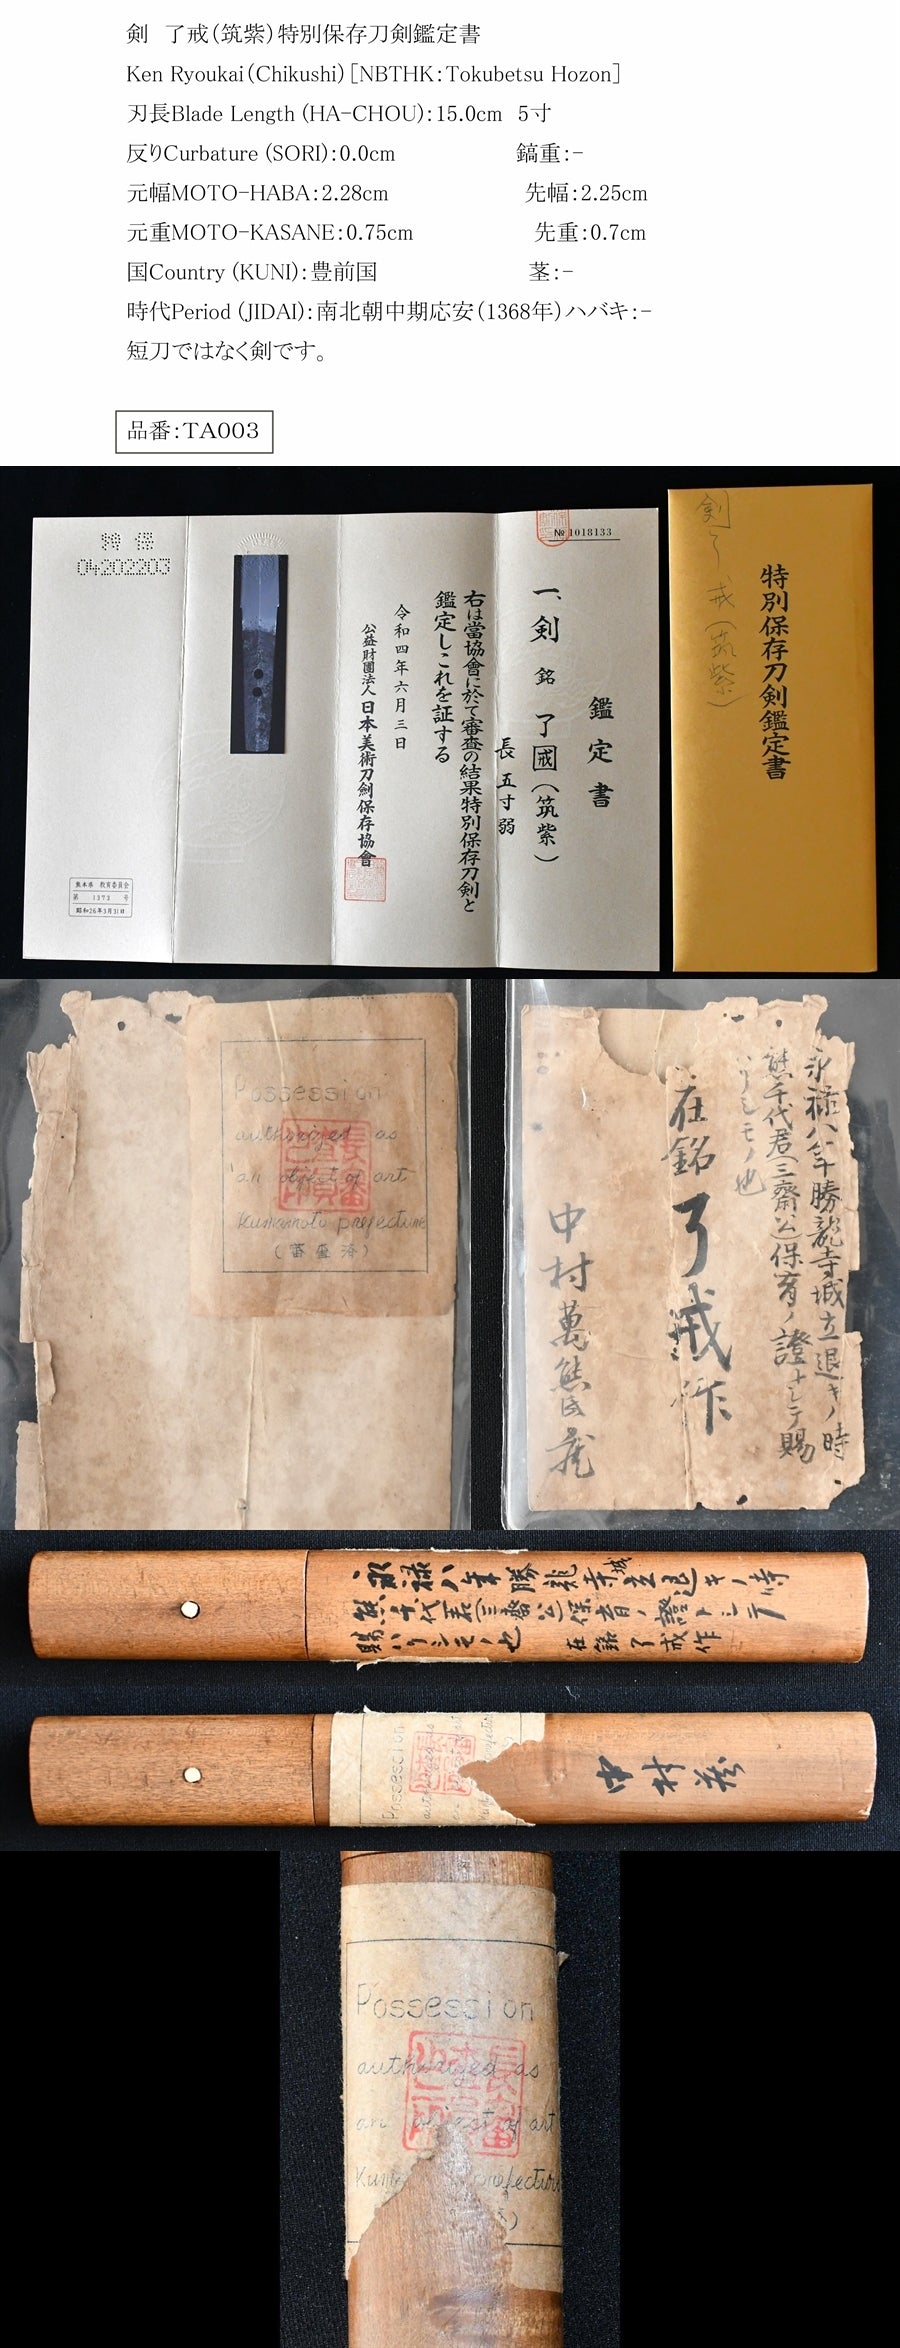 剣 了戒（筑紫）特別保存刀剣鑑定書
Ken Ryoukai（Chikushi）［NBTHK：Tokubetsu Hozon］
刃長Blade Length (HA-CHOU)：15.0cm 5寸
反りCurbature (SORI)：0.0cm 鎬重：-
元幅MOTO-HABA：2.28cm 先幅：2.25cm
元重MOTO-KASANE：0.75cm 先重：0.7cm
国Country (KUNI)：豊前国 茎：-
時代Period (JIDAI)：南北朝中期応安（1368年）ハバキ：-
短刀ではなく剣です。
品番：TA003
特別保存刀剣鑑定書
剣 了戒（筑紫）
№ 1018133
鑑定書
一、剣 銘 了戒（筑紫）
長 五寸弱
右は當協會に於て審査の結果特別保存刀剣と
鑑定しこれを証する
令和四年六月三日
公益財團法人 日本美術刀劍保存協會
特保
04202203
熊本県 教育委員会
第 1373 号
昭和26年3月31日
Possession
authorized as
an object of art
Kumamoto prefecture
（審査済）
永禄八年勝龍寺城立退キノ時
熊千代君（三齋公）保育ノ證トシテ賜
ハリシモノ也
在銘 了戒作
中村萬熊氏蔵
永禄八年勝龍寺城立退キノ時
熊千代君（三齋公）保育ノ證トシテ
賜ハリシモノ也 在銘了戒作
Possession
中村蔵
Possession
authorized as
an object of art
prefecture